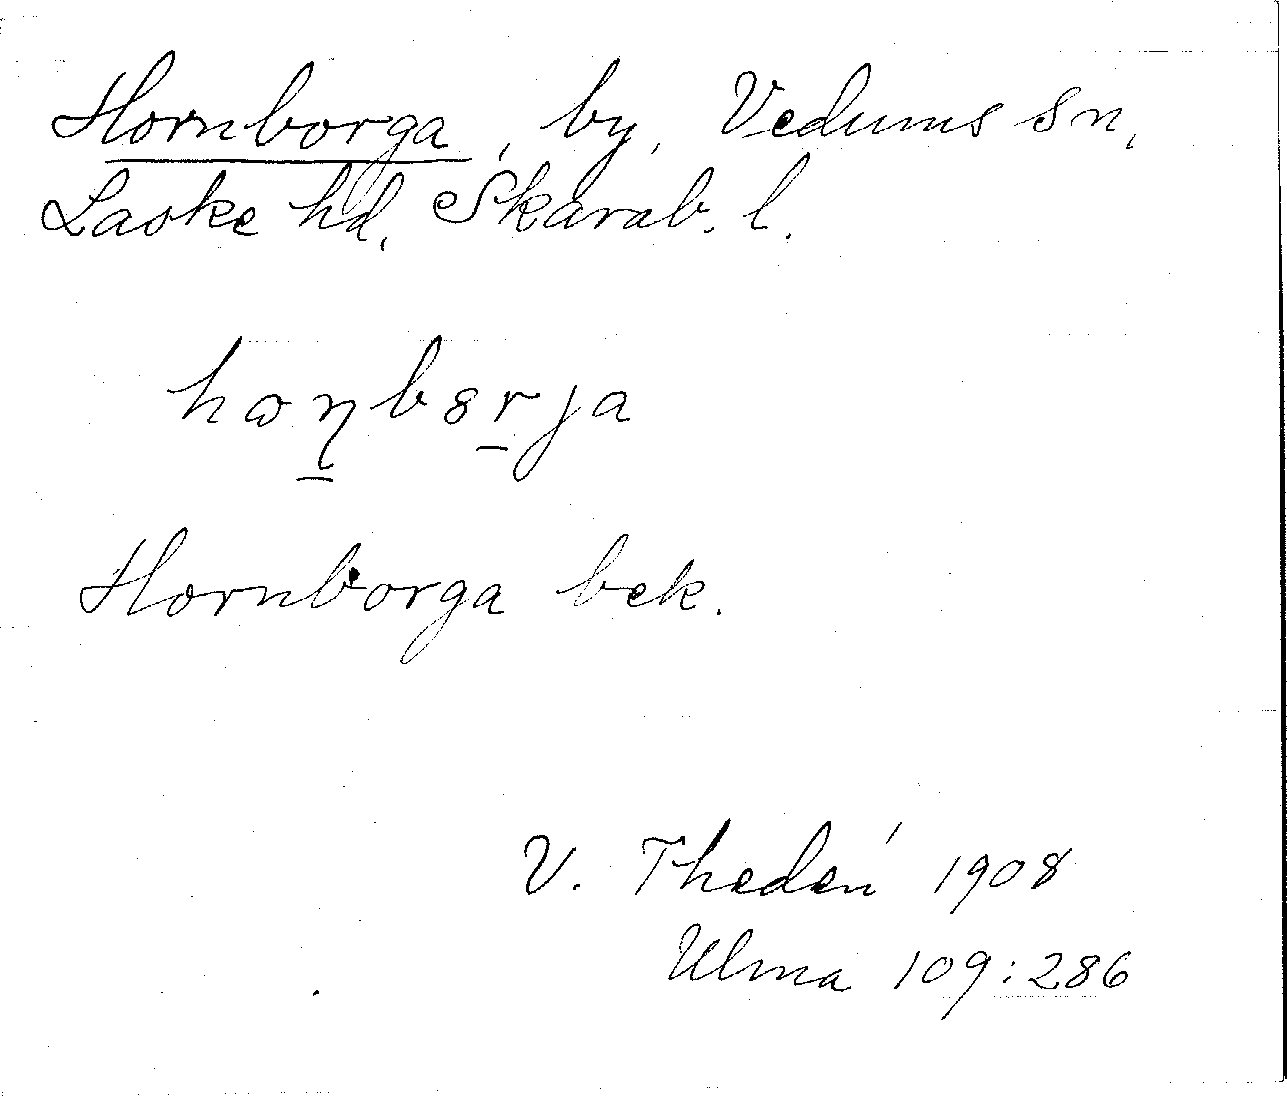 Hornborga, by, Vedums sn,
Laske hd, Skarab. l.
Hornborga bek.
V. Thedén 1908
Ulma 109:286